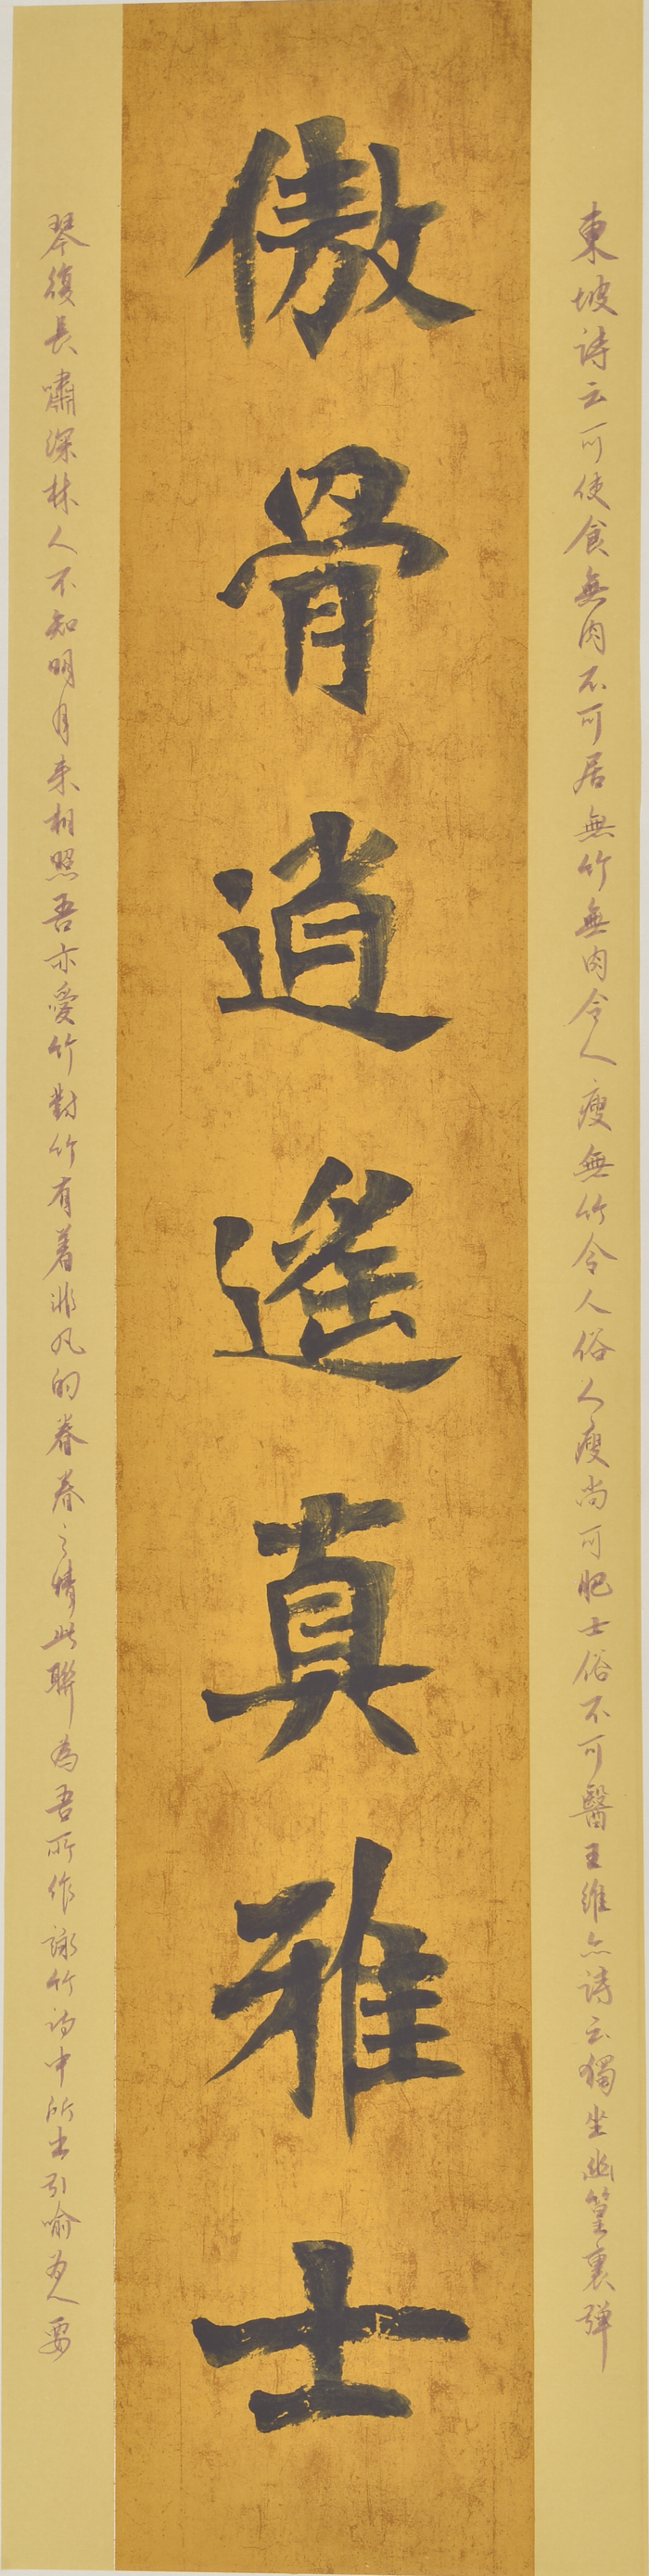 東坡詩云可使食無肉不可居無竹無肉令人瘦無竹令人俗人瘦尚可肥士俗不可醫王維亦詩云獨坐幽篁裏彈
傲骨逍遙真雅士
琴復長嘯深林人不知明月來相照吾亦愛竹對竹有着非凡的眷眷之情此聯為吾所作詠竹詩中所出引喻為人要